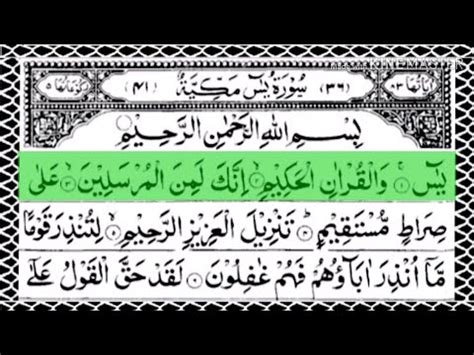 KINEMASTER
اٰیَاتُهَا ٨٣ (٣٦) سُوْرَةُ يٰسٓ مَكِّيَّةٌ (٤١) رُكُوْعَاتُهَا ٥
بِسْمِ اللهِ الرَّحْمٰنِ الرَّحِيْمِ
يٰسٓ ۚ‏ ١ وَالْقُرْاٰنِ الْحَكِيْمِ ۙ‏ ٢ اِنَّكَ لَمِنَ الْمُرْسَلِيْنَ ۙ‏ ٣ عَلٰى
صِرَاطٍ مُّسْتَقِيْمٍ ؕ‏ ٤ تَنْزِيْلَ الْعَزِيْزِ الرَّحِيْمِ ۙ‏ ٥ لِتُنْذِرَ قَوْمًا
مَّاۤ اُنْذِرَ اٰبَآؤُهُمْ فَهُمْ غٰفِلُوْنَ ٦ لَقَدْ حَقَّ الْقَوْلُ عَلٰٓى